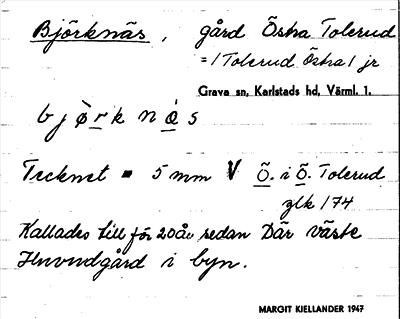 Björknäs, gård Östra Tolerud
= / Tolerud Östra / jr
Grava sn, Karlstads hd, Värml. l.
bjö̀rknás
Tecknet = 5 mm V Ö. i Ö. Tolerud
glk 174
Kallades till för 20 år sedan Där väste
Huvudgård i byn.
MARGIT KIELLANDER 1947